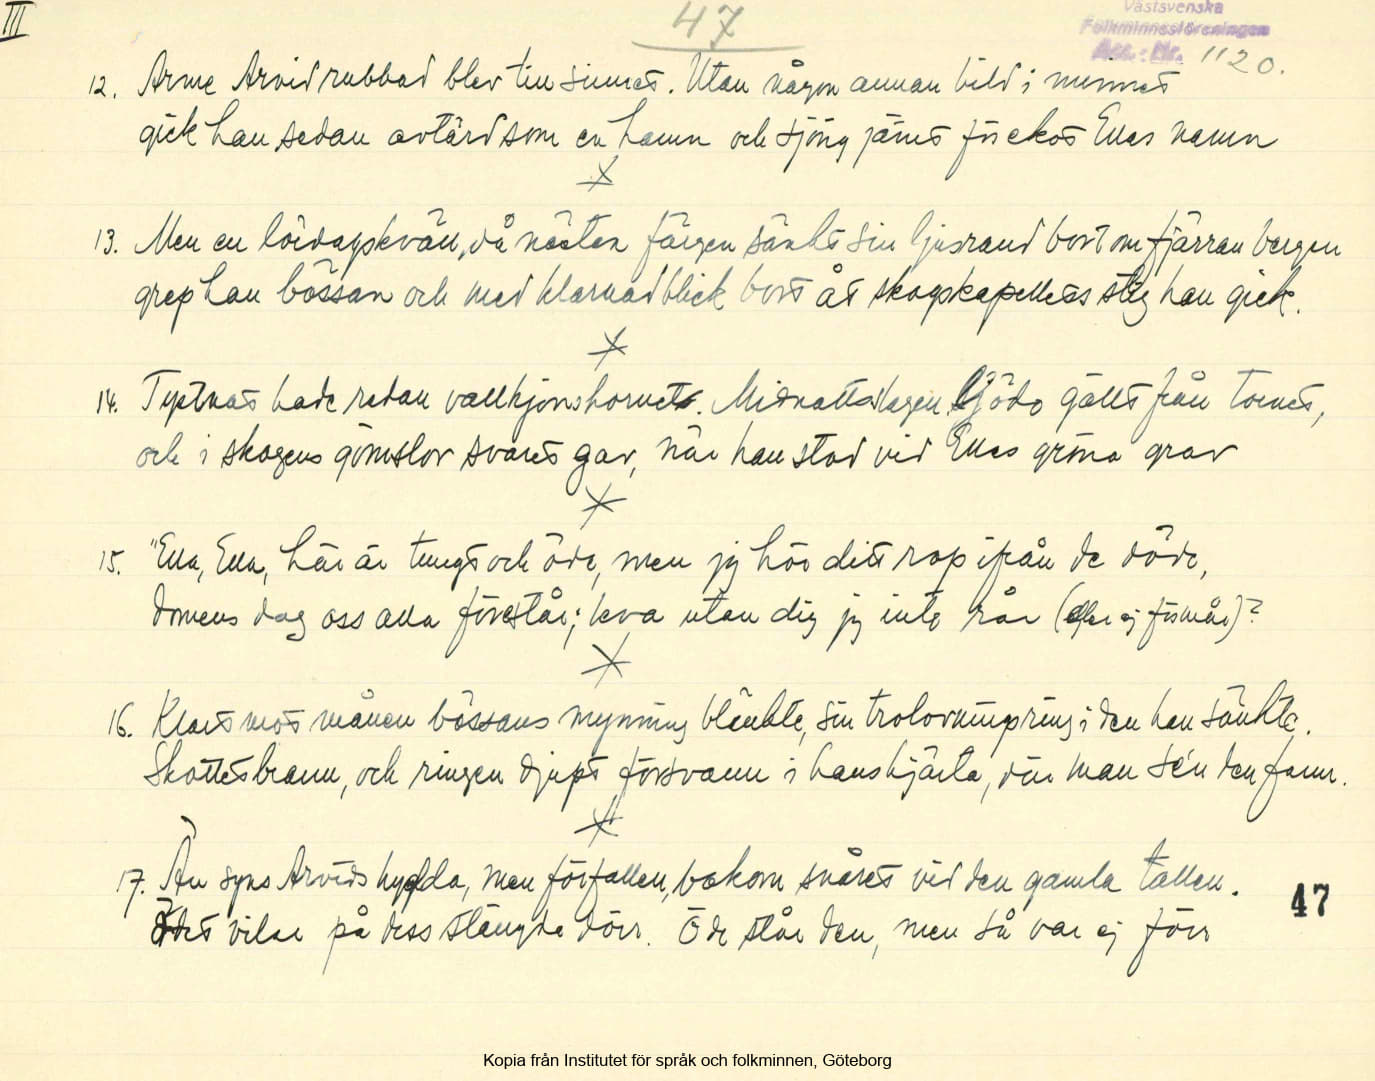 III
47
Västsvenska
Folkminnesföreningen
Acc. Nr. 1120.
12. Arme Arvid rubbad blev till sinnet. Utan någon annan bild i minnet
gick han sedan avtärd som en hamn och sjöng jämt för ekot Ellas namn
13. Men en lördagskväll, då nästan färgen sänkt sin ljusrand bortom fjärran bergen
grep han bössan och med klarnad blick bort åt skogskapellets stig han gick.
14. Tystnat hade redan vallhjonshornet. Midnattsslagen ljödo gällt från tornet,
och i skogens gömslor svaret gav, när han stod vid Ellas gröna grav
15. "Ella, Ella, här är tungt och öde, men jag hör ditt rop ifrån de döde,
domens dag oss alla förestår; leva utan dig jag inte rår (eller ej förmår)?
16. Klart mot månen bössans mynning blänkte, sin trolovningsring i den han sänkte.
Skottet brann, och ringen djupt försvann i hans hjärta, där man se'n den fann.
17. Än syns Arvids hydda, men förfallen, bakom snåret vid den gamla tallen.
Ödet vilar på dess stängda dörr. Öde står den, men så var ej förr
47
Kopia från Institutet för språk och folkminnen, Göteborg